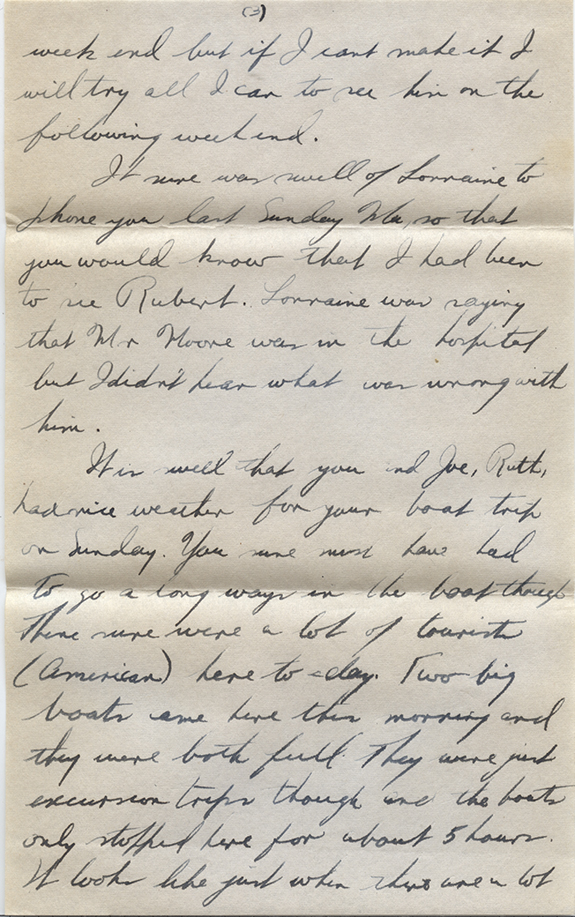 (3)
week end but if I cant make it I
will try all I can to see him on the
following week end.
It sure was swell of Lorraine to
phone you last Sunday Ma, so that
you would know that I had been
to see Rubert. Lorraine was saying
that Mr Moore was in the hospital
but I didn't hear what was wrong with
him.
It is swell that you and Joe, Ruth,
had nice weather for your boat trip
on Sunday. You sure must have had
to go a long ways in the boat though
There sure were a lot of tourists
(American) here to-day. Two big
boats came here this morning and
they were both full. They were just
excursion trips though and the boats
only stopped here for about 5 hours.
It looks like just when there are a lot